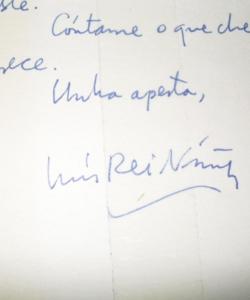 Cóntame o que che
Unha aperta,
Luís Rei Núñez